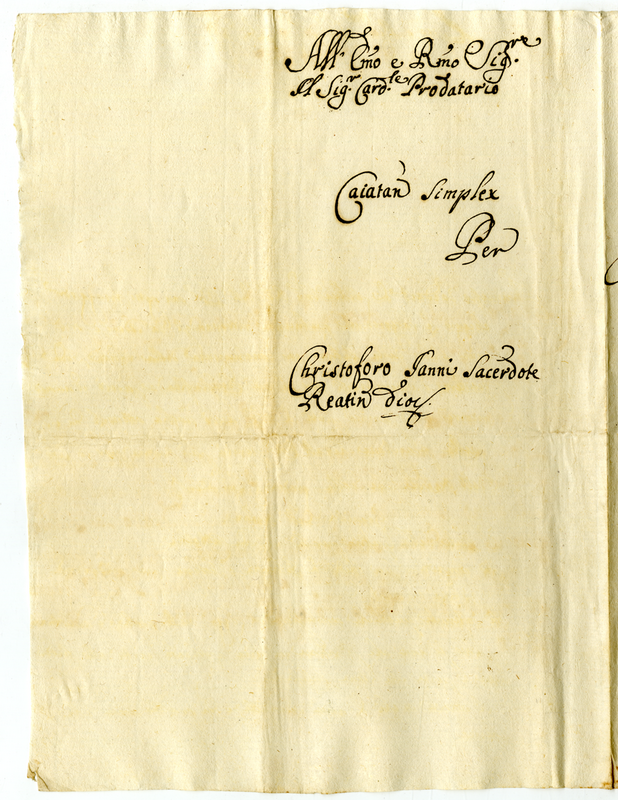 All' Emo e Rmo Sigre
Il Sigr Cardle Prodatario
Caiatan Simplex
Per
Christoforo Ianni Sacerdote
Reatin Dioc.